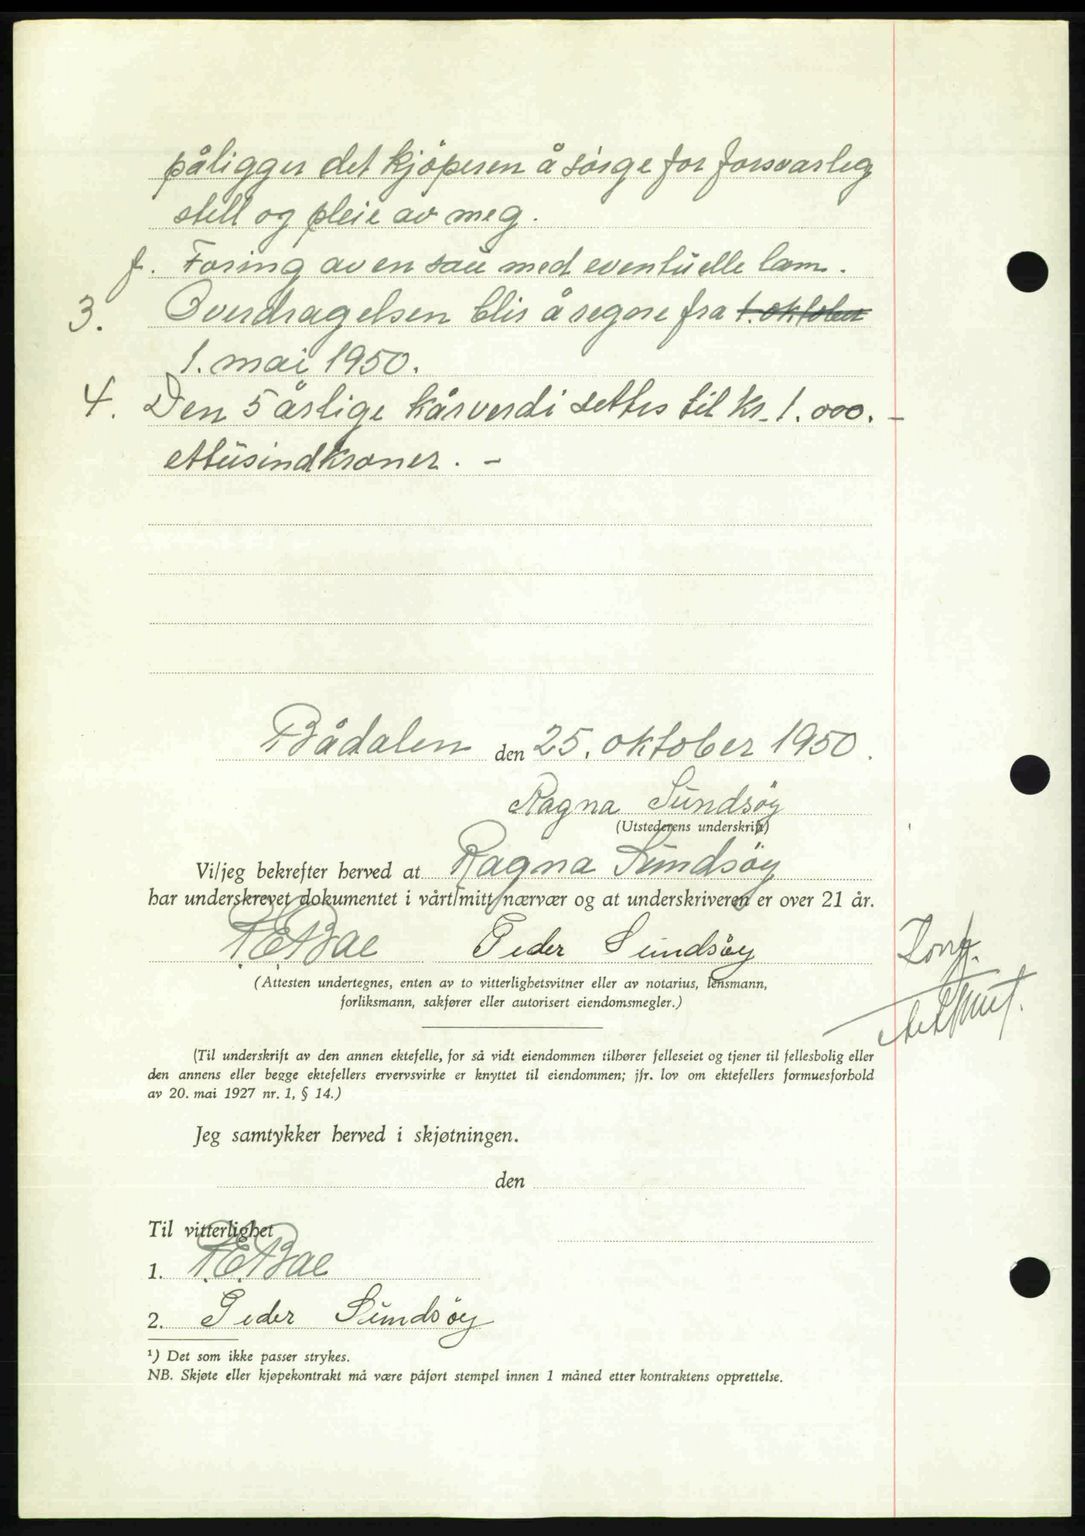 påligger det kjöperen å sörge for forsvarleg
stell og pleie av meg.
f. Foring av en sau med eventuelle lam.
3. Overdragelsen blir å regne fra 1. oktober
1. mai 1950.
4. Den 5 årlige kårverdi settes til kr. 1.000.-
ettusindkroner. -
Bådalen den 25. oktober 1950.
Ragna Sundsöy
(Utstederens underskrift)
Vi/jeg bekrefter herved at Ragna Sundsöy
har underskrevet dokumentet i vårt/mitt nærvær og at underskriveren er over 21 år.
R.E.Bae Peder Sundsöy
(Attesten undertegnes, enten av to vitterlighetsvitner eller av notarius, lensmann,
forliksmann, sakfører eller autorisert eiendomsmegler.)
(Til underskrift av den annen ektefelle, for så vidt eiendommen tilhører felleseiet og tjener til fellesbolig eller
den annens eller begge ektefellers ervervsvirke er knyttet til eiendommen; jfr. lov om ektefellers formuesforhold
av 20. mai 1927 nr. 1, § 14.)
Jeg samtykker herved i skjøtningen.
den
Til vitterlighet
1. R.E.Bae
2. Peder Sundsöy
¹) Det som ikke passer strykes.
NB. Skjøte eller kjøpekontrakt må være påført stempel innen 1 måned etter kontraktens opprettelse.